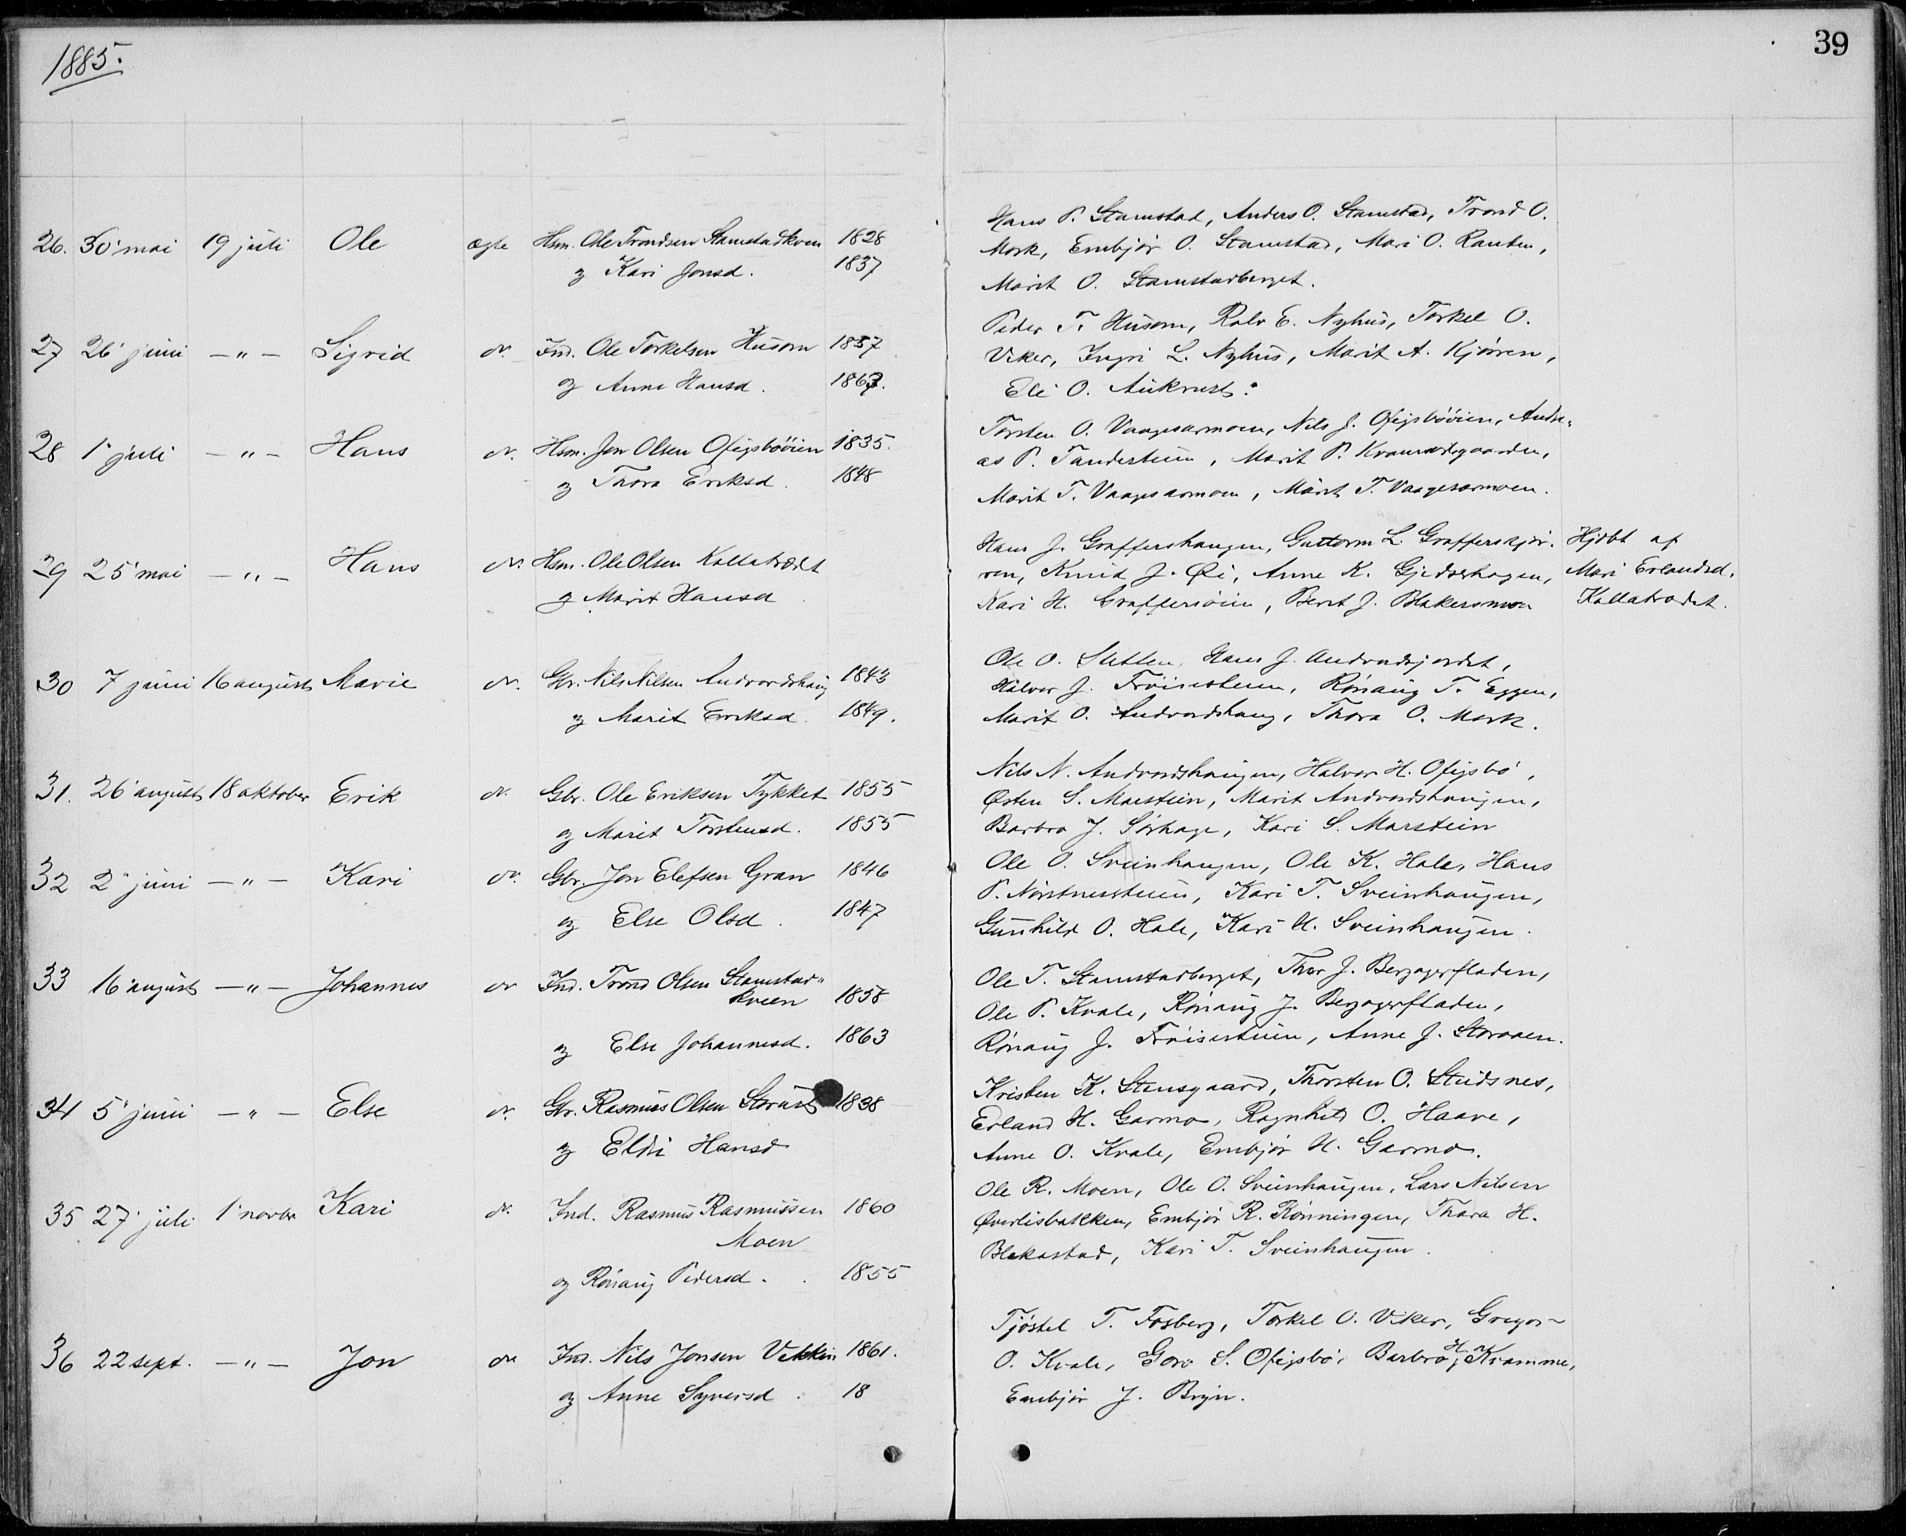 1885.
39
26. 30' mai 19 juli Ole ægte Hsm. Ole Trondsen Stamstadkven 1828
og Kari Jonsd. 1837
Hans P. Stamstad, Anders O. Stamstad, Trond O.
Mork, Embjør O. Stamstad, Mari O. Rusten,
Marit O. Stamstadberget.
27 26' juni — " — Sigrid do. Ind. Ole Torkelsen Husom 1857
og Anne Hansd. 1863.
Peder T. Husom, Rolv E. Nyhus, Torkel O.
Viker, Ingri L. Nyhus, Marit A. Kjøren,
Eli O. Aukrust.
28 1' juli — " — Hans do. Hsm. Jon Olsen Ofigsbøøien 1835.
og Thora Eriksd. 1848
Torsten O. Vaagesarmoen, Nils J. Ofigsbøøien, Andre-
as P. Tandersteiin, Marit P. Kvamsødegaarden,
Marit T. Vaagesarmoen, Marit T. Vaagesarmoen.
29 25' mai — " — Hans do. Hsm. Ole Olsen Kollatrædet
og Marit Hansd
Hans J. Graffershaugen, Guttorm L. Grafferskjør-
ren, Knud J. Øi, Anne K. Gjedserhagen,
Kari H. Graffersøien, Berit J. Blakersmoen
Hjdbt af
Mari Erlandsd.
Kollatrædet.
30 7 juni 16 august Marie do. Gbr. Nils Nilsen Andvordshaug 1843
og Marit Eriksd. 1849.
Ole O. Sletten, Hans J. Andvordsjordet,
Halvor J. Frøisesteien, Rønaug T. Eggen,
Marit O. Andvordshaug, Thora O. Mork.
31. 26' august 18 oktober Erik do. Gbr. Ole Eriksen Tykket 1855
og Marit Torstensd. 1855
Nils N. Andvordshaugen, Halvor H. Ofigsbø,
Østen S. Marstein, Marit Andvordshaugen,
Barbro J. Sørhage, Kari S. Marstein
32 2' juni — " — Kari do. Gbr. Jon Elefsen Gran 1846
og Else Olsd. 1847
Ole O. Sveinhaugen, Ole K. Hole, Hans
P. Nørstnessteien, Kari T. Sveinhaugen,
Gunhild O. Hole, Kari H. Sveinhaugen.
33 16' august — " — Johannes do Ind. Trond Olsen Stamstad-
kvien 1858
og Else Johannesd. 1863
Ole T. Stamstadberget, Thor J. Bergagerfladen,
Ole P. Kvale, Rønaug J. Bergagerfladen,
Rønaug J. Frøisesteien, Anne J. Storaaen.
34 5' juni — " — Else do. Gbr. Rasmus Olsen Storust 1838
og Eldri Hansd
Kristen K. Stensgaard, Thorsten O. Studsnes,
Erland H. Garmo, Ragnhild O. Haave,
Anne O. Kvale, Embjør H. Garmo.
35 27' juli 1' novbr Kari do. Ind. Rasmus Rasmussen 1860
Moen
og Rønaug Pedersd. 1855
Ole R. Moen, Ole O. Sveinhaugen, Lars Nilsen
Øverlisbakken, Embjør R. Rønningen, Thora H.
Blekastad, Kari T. Sveinhaugen.
36 22 sept. — " — Jon do Ind. Nils Jonsen Vekken 1861.
og Anne Syversd. 18
Tjøstel T. Fosberg, Torkel O. Viker, Gregor
O. Kvale, Goro S. Ofigsbø, Barbro H. Kramme,
Embjør J. Bryn.